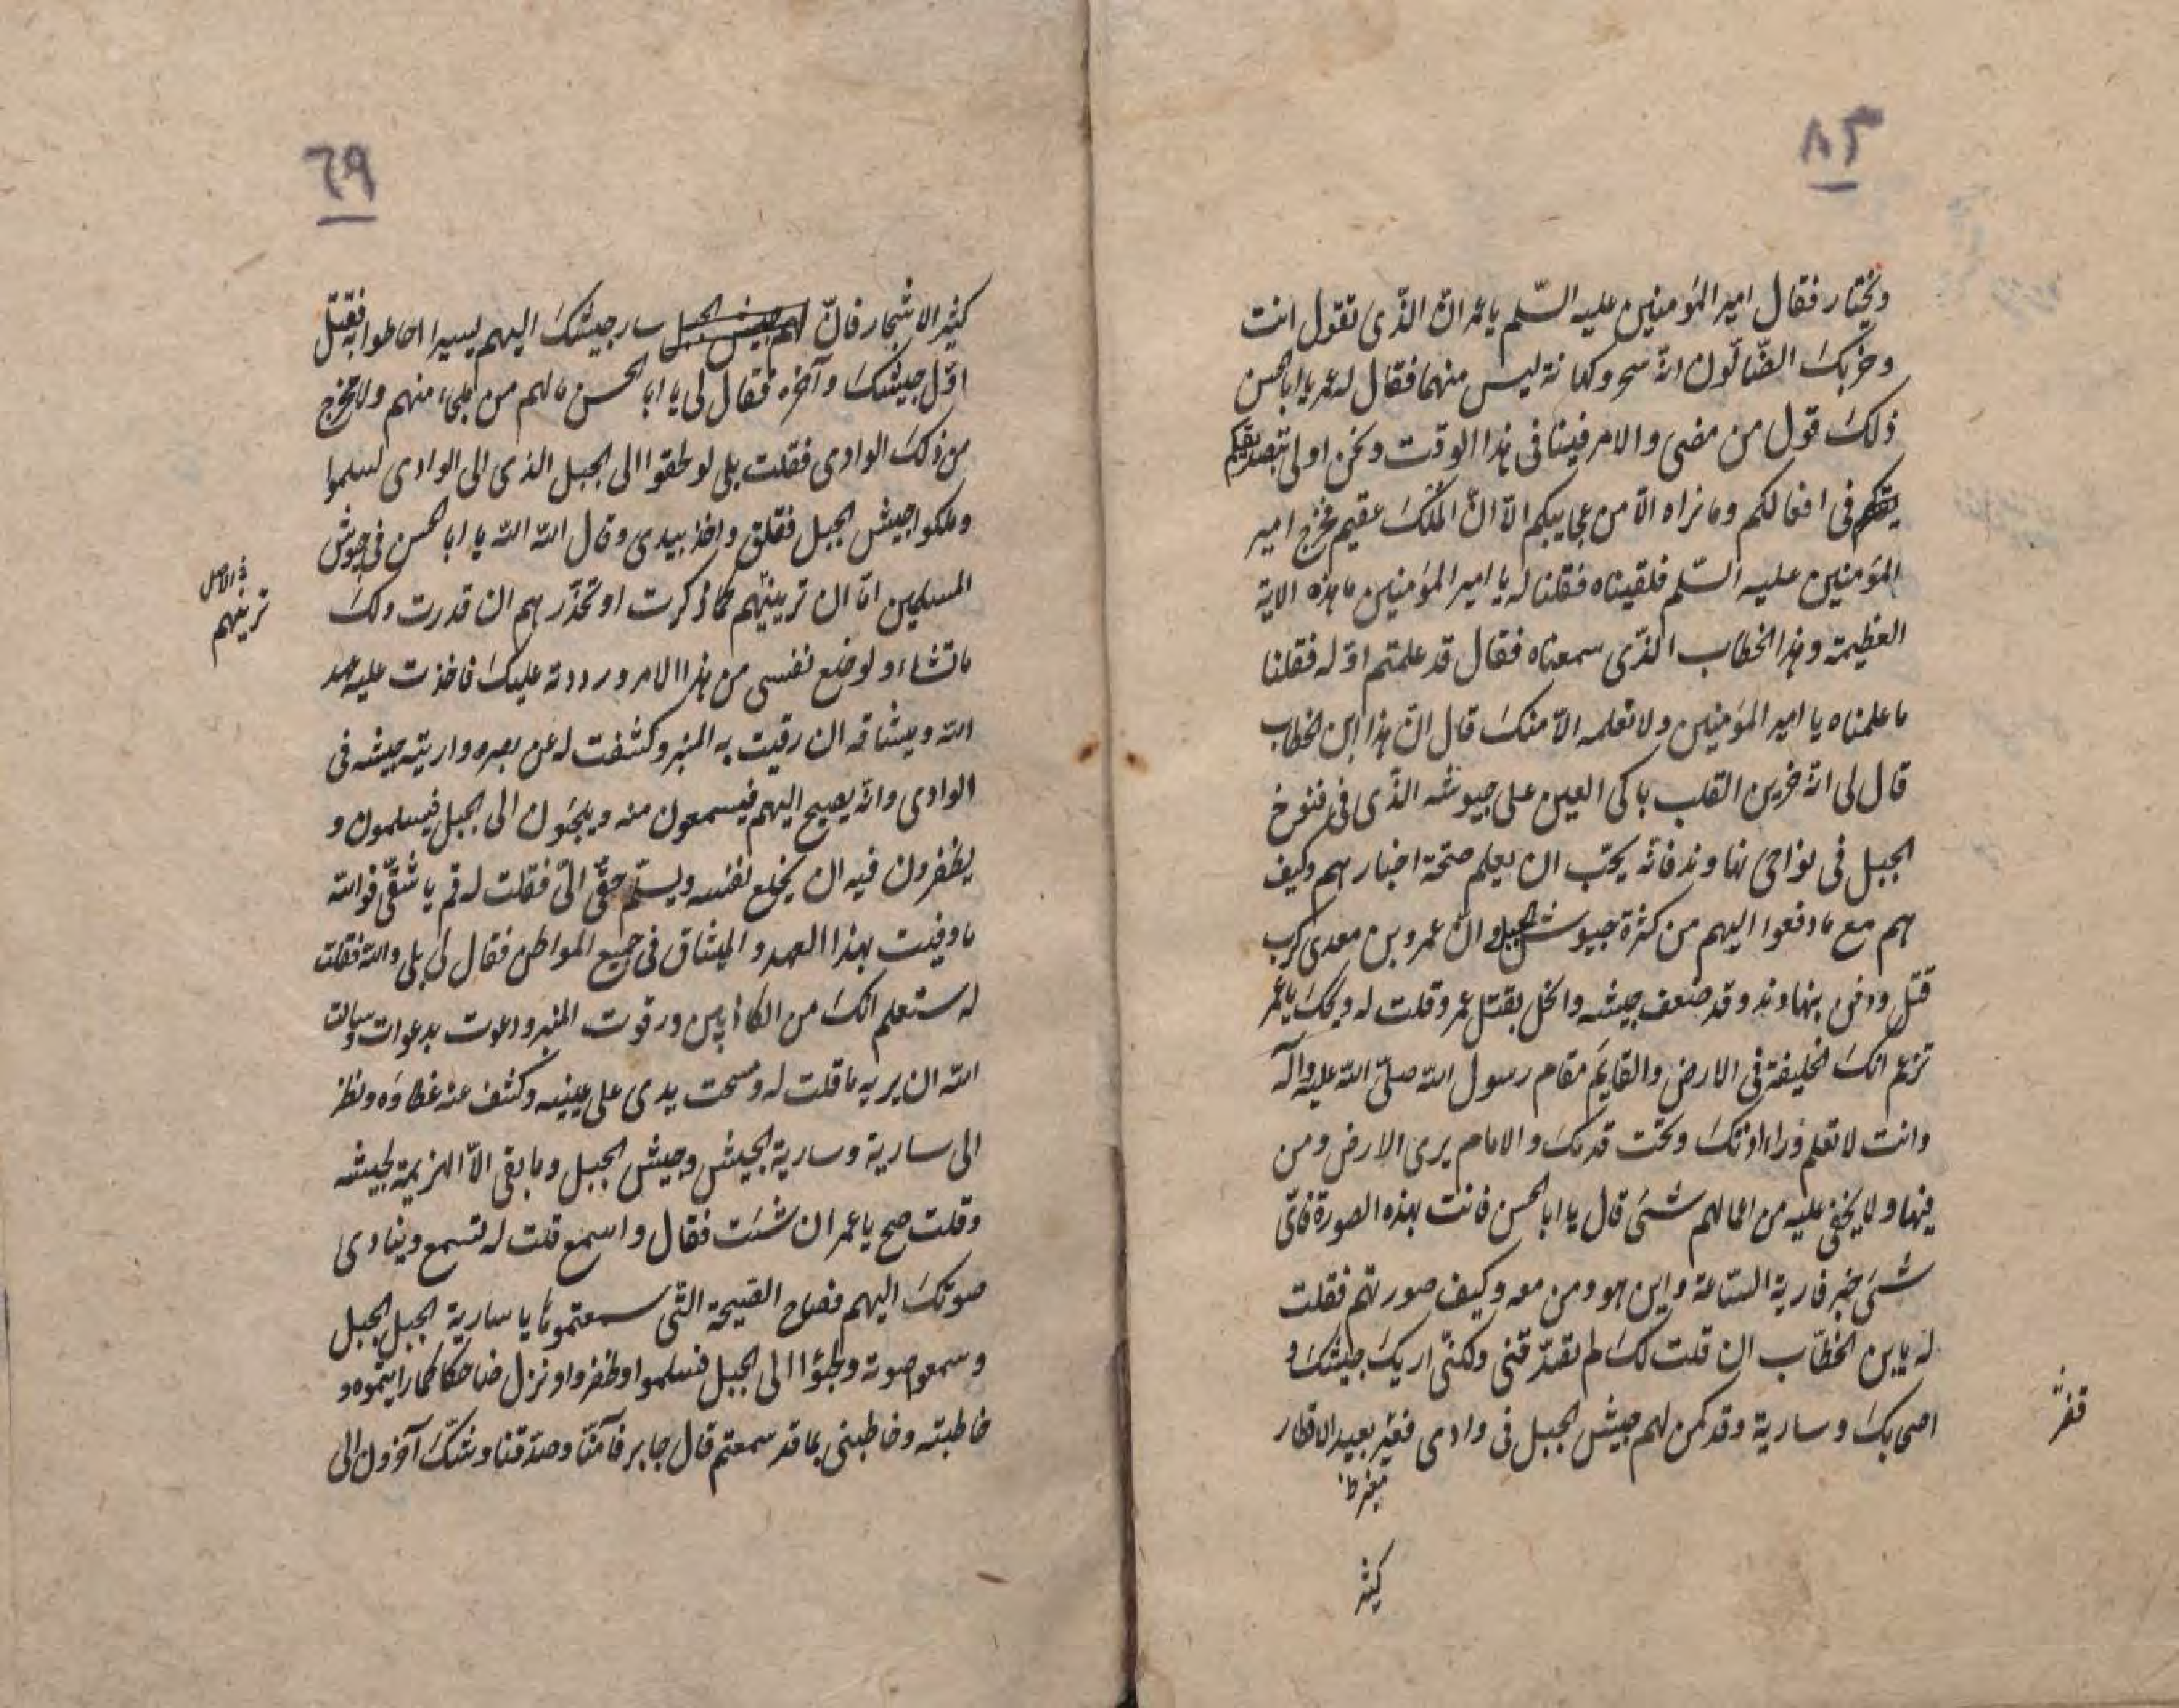 ٨٣
ويختار فقال امير المؤمنين عليه السّلم يا عمر انّ الذّى تقول انت
وحزبك الضّالّون انّه سحر وكهانة ليس منهما فقال له عمر يا ابا الحسن
ذلك قول من مضى والامر فينا فى هذا الوقت ونحن اولى بتصديقكم
فى افعالكم وما نراه الّا من عجايبكم الّا انّ الملك عقيم فخرج امير
المؤمنين عليه السّلم فلقيناه فقلنا له يا امير المؤمنين ما هذه الاية
العظيمة وهذا الخطاب الذّى سمعناه فقال قد علمتم اوّله فقلنا
ما علمناه يا امير المؤمنين ولا نعلمه الّا منك قال انّ هذا ابن الخطاب
قال لى انّه حزين القلب باكى العين على جيوشه الذّى فى فتوح
الجبل فى نواحى نهاوند فانّه يحبّ ان يعلم صحّة اخبارهم وكيف
هم مع ما دفعوا اليهم من كثرة جيوش الجبل وانّ عمرو بن معدى كرب
قتل ودفن بنهاوند وقد ضعف جيشه وانخل بقتل عمرو قلت له ويحك يا عمر
تزعم انّك الخليفة فى الارض والقايم مقام رسول الله صلّى الله عليه وآله
وانت لا تعلم وراء اذنك وتحت قدمك والامام يرى الارض ومن
فيها ولا يخفى عليه من اعمالهم شىء قال يا ابا الحسن فانت بهذه الصورة فاتى
شىء خبر فارية السّاعة واين هو ومن معه وكيف صورتهم فقلت
له يا بن الخطّاب ان قلت لك لم تصدّقنى ولكنّى اريك جيشك و
اصحابك وسارية وقد كمن لهم جيش الجبل فى وادى قفر بعيد الاقطار
قفر
كثير
٦٩
كثير الاشجار فانّ سار جيشك اليهم يسيرا احاطوا به فقتل
اوّل جيشك وآخره فقال لى يا ابا الحسن ما لهم من ملجاء منهم ولا مخرج
من ذلك الوادى فقلت بلى لو لحقوا الى الجبل الذى الى الوادى لسلموا
وملكوا جيش الجبل فقلق واخذ بيدى وقال الله الله يا ابا الحسن فى جيوش
المسلمين امّا ان ترينيّهم كما ذكرت او تحذّرهم ان قدرت ولك
فى الاصل
ترينهم
ما تشاء ولو خلع نفسى من هذا الامر ورددته عليك فاخذت عليه عهد
الله وميثاقه ان رقيت به المنبر وكشفت له عن بصره واريته جيشه فى
الوادى وانّه يصيح اليهم فيسمعون منه ويلجئون الى الجبل فيسلمون و
يظفرون فيه ان يخلع نفسه ويسلّم حقّى الىّ فقلت له قم يا شقىّ فوالله
ما وفيت بهذا العهد والميثاق فى جميع المواطن فقال لى بلى والله فقلت
له ستعلم انّك من الكاذبين ورقوت المنبر ودعوت بدعوات وسالت
الله ان يريه ما قلت له ومسحت يدى على عينيه وكشف عنه غطاؤه ونظر
الى سارية وسارية الجيش وجيش الجبل وما بقى الّا الهزيمة لجيشه
وقلت صح يا عمر ان شئت فقال واسمع قلت له تسمع وينادى
صوتك اليهم فصاح الصّيحة التّى سمعتموها يا سارية الجبل الجبل
وسمعوا صوته ولجئوا الى الجبل فسلموا وظفروا ونزل ضاحكا كما رايتموه و
خاطبته وخاطبنى بما قد سمعتم قال جابر فآمنّا وصدّقنا وشكّ آخرون الى